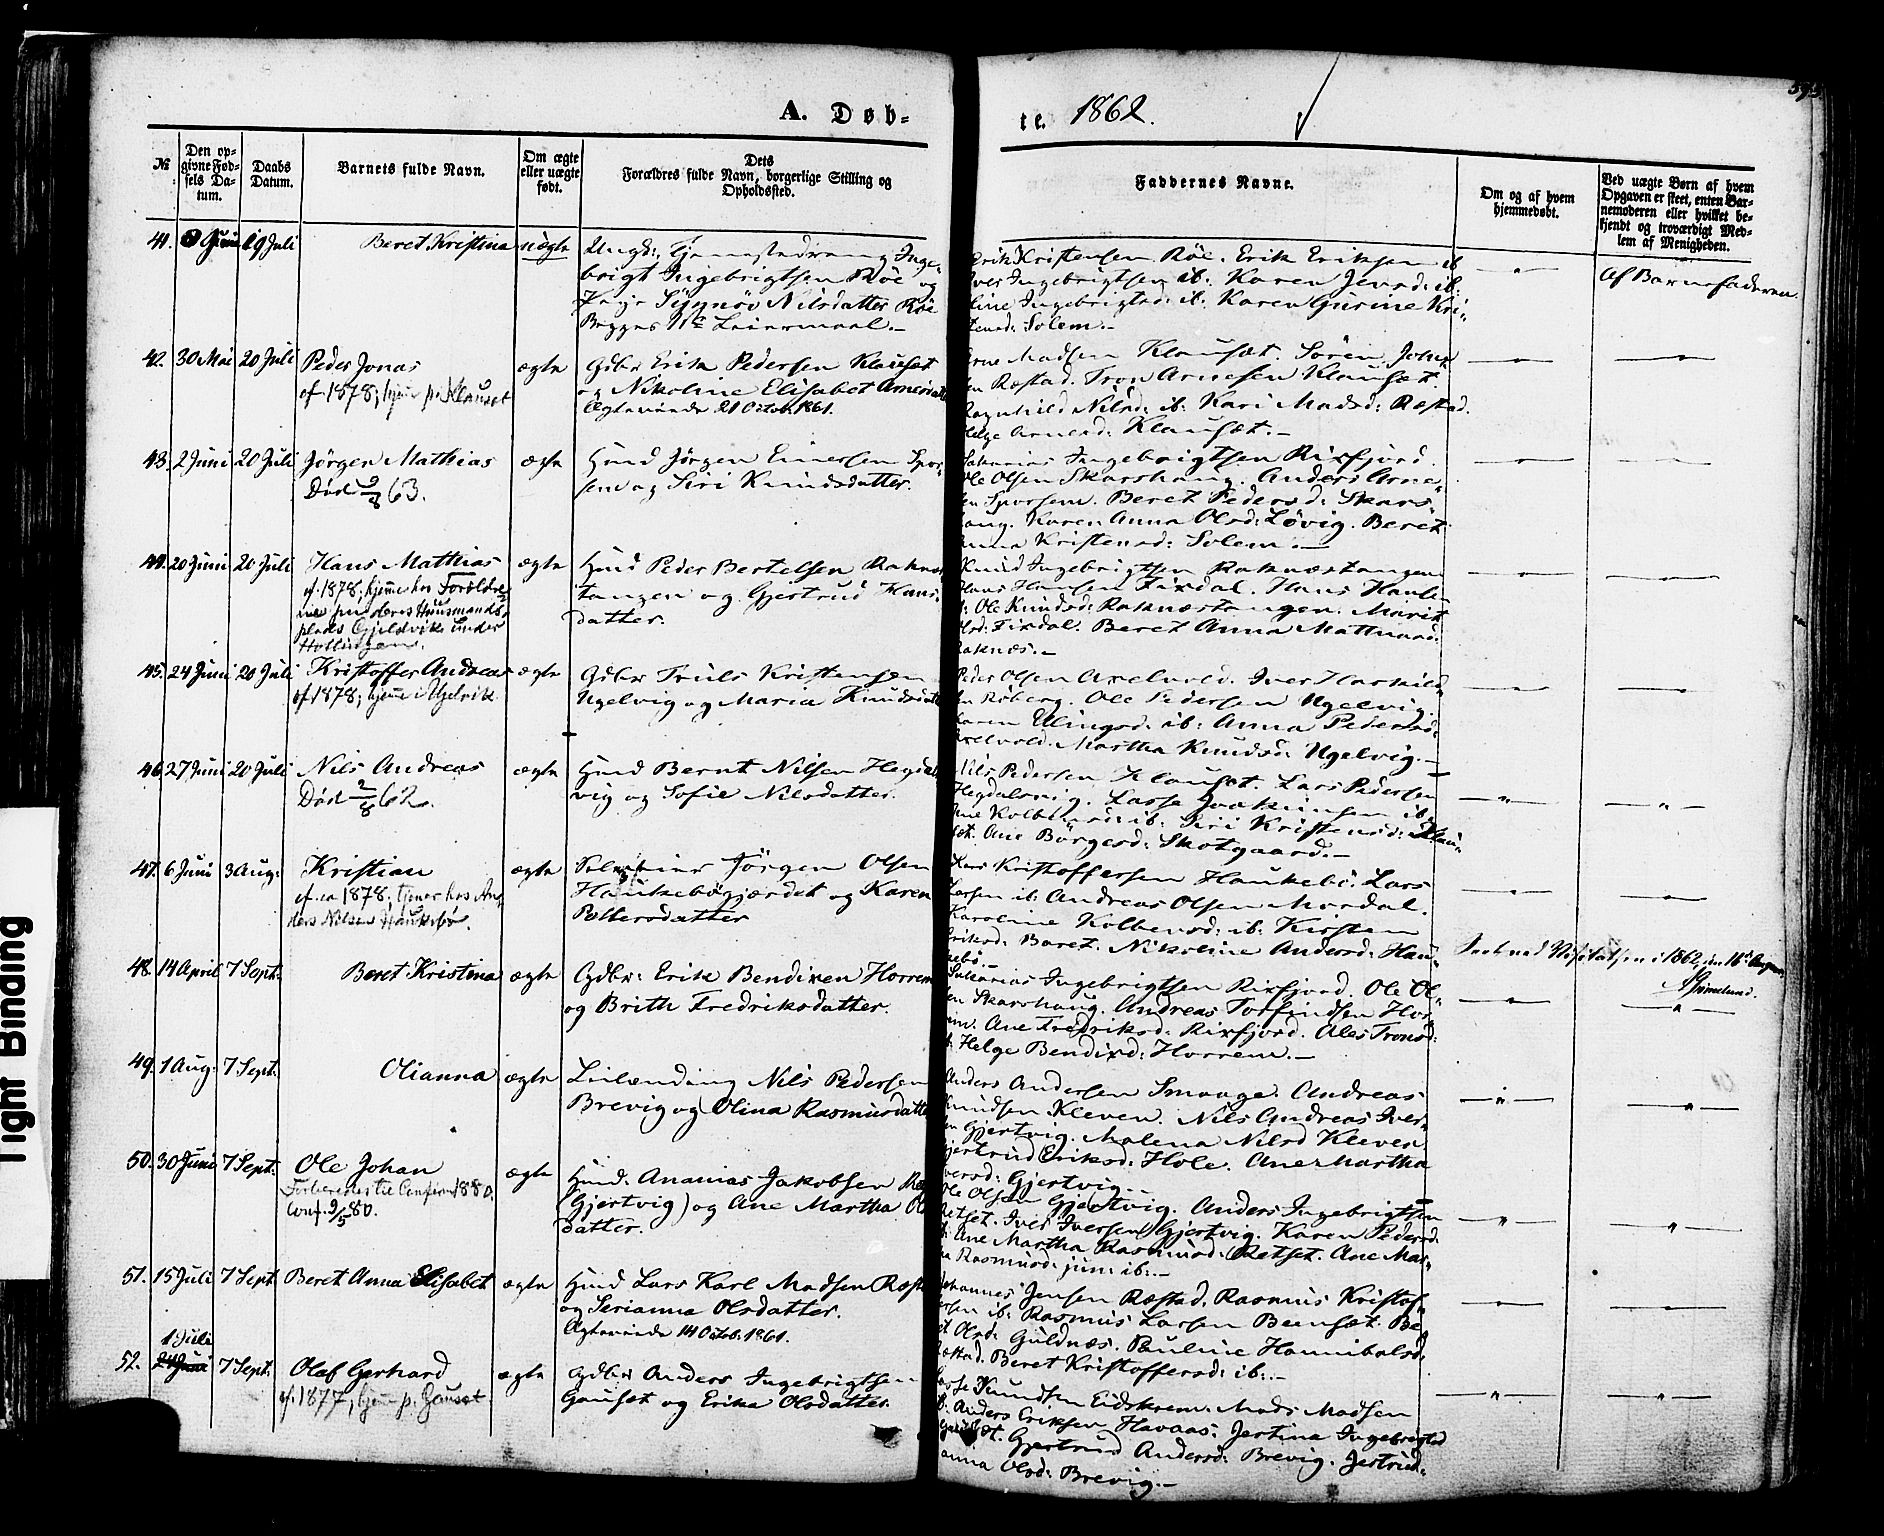 A. Døb-
te. 1862.
595
№
Den op-
givne Fød-
sels Da-
tum.
Daabs
Datum.
Barnets fulde Navn.
Om ægte
eller uægte
født.
Dets
Forældres fulde Navn, borgerlige Stilling og
Opholdssted.
Faddernes Navne.
Om og af hvem
hjemmedøbt.
Ved uægte Børn af hvem
Opgaven er skeet, enten Bar-
nemoderen eller hvilket be-
kjendt og troværdigt Med-
lem af Menigheden.
41. Juni 19 Juli Beret Kristina uægte
Ungk: Inge-
brigt Ingebrigtsen Røe og
Pige Synnøv Nilsdatter Røe
Begges 1ste Leiermaal.-
Erik Kristensen Røe. Erik Eriksen ib
Iver Ingebrigtsen ib: Karen Jensd: ib.
line Ingebrigtsd: ib: Karen Gurine Kri-
stensd: Solem.-
Af Barnefaderen.
42. 30 Mai 20 Juli Peder Jonas ægte
cf 1878; hjem: p. Klauset
Gdbr Erik Pedersen Klauset
og Nikoline Elisabet Arnesdatt
Ægteviede 21 Octob. 1861.
Arne Madsen Klauset. Sören John
sen Ræstad. Tron Arnesen Klauset.
Ragnhild Nilsd: ib: Kari Madsd: Ræstad.
Helge Arnesd: Klauset.-
43. 2 Juni 20 Juli Jörgen Mathias ægte
Död 63.
Hmd Jörgen Einersen Spor-
sem og Siri Knudsdatter.
Sakarias Ingebrigtsen Rixfjord.
Ole Olsen Skarshaug. Anders Arne-
sen Sporsem. Beret Pedersd: Skars-
haug. Karen Anna Olsd: Løvig. Beret
Anna Kristensd: Solem.-
44. 20 Juni 20 Juli Hans Matthias ægte
cf. 1878; hjeme hos Forældre-
ne paa deres Huusmands-
plads Gjeldvik under
Hollingen.
Hmd Peder Bertelsen Raknes
tangen og Gjertrud Hans-
datter.
Knud Ingebrigtsen Raknæstangen
Hans Hansen Fixdal. Hans Hansen
ib: Ole Knudsd: Raknæstangen. Marit
Olsd: Fixdal. Beret Anna Mattiasd:
Raknæs.-
45. 24 Juni 20 Juli Kristoffer Andreas ægte
cf 1878; hjeme i Ugelvik.
Gdbr Truls Kristensen
Ugelvig og Maria Knudsdatt
Peder Olsen Axelvold. Iver Haskild
sen Røberg. Ole Pedersen Ugelvig.
Karen Ellingsd: ib: Anna Pedersd:
Axelvold. Martha Knudsd: Ugelvig.-
46. 27 Juni 20 Juli Nils Andreas ægte
Död 2/8 62.
Hmd Bernt Nilsen Hegdal
vig og Sofie Nilsdatter.
Nils Pedersen Klauset. Lars Pedersen
Hegdalsvig. Lasse Joakimsen ib.
Ane Kolbensd: ib: Siri Kristensd: Klau-
set. Ane Börgesd: Skotgaard.-
47. 6 Juni 3 Aug: Kristian ægte
cf. ca 1878. tjener hos An-
ders Nilsen Haukebø.
Jörgen Olsen
Haukebøgjærdet og Karen
Pettersdatter
Lars Kristoffersen Haukebø. Lars
Larsen ib: Andreas Olsen Mordal.
Karoline Kolbensd: ib: Kirsten
Eriksd: Baret. Nikoline Andersd: Hau-
kebø.-
Seet ved Visitatsen i 1862, den 16de August
Grimelund.
48. 14 April 7 Sept: Beret Kristina ægte
Gdbr: Erik Bendixen Horrem
og Brith Fredriksdatter.
Sakarias Ingebrigtsen Rixfjord. Ole Ol-
sen Skarshaug. Andreas Torfindsen Hor-
rem. Ane Fredriksd: Rixfjord. Ales Tronsd:
ib: Helge Bendixd: Horrem.-
49. 1 Aug: 7 Sept: Olianna ægte
Nils Pedersen
Brevig og Olina Rasmusdatter
Anders Andersen Smaage. Andreas
Knudsen Kleven. Nils Andreas Iver-
sen Gjertvig. Malena Nilsd Kleven
Gjertrud Eriksd: Hole. Ane Martha
Iversd: Gjertvig.-
50. 30 Juni 7 Sept: Ole Johan ægte
Forberedes til Confirm 1880.
Conf. 9/5 80.
Hmd. Ananias Jakobsen Ræ
(Gjertvig) og Ane Martha
datter.
Ole Olsen Gjertvig. Anders Ingebrigtsen
Retset. Iver Iversen Gjertvig. Karen Pedersd.
ib: Ane Martha Rasmusd: Retset. Ane Mar-
tha Rasmusd: jun: ib:-
51. 15 Juli 7 Sept Beret Anna Elisabet ægte
Hmd Lars Karl Madsen Ræst
og Serianna Olsdatter.
Ægteviede 14 Octob. 1861.
Johannes Jensen Ræstad. Rasmus Kristof-
fersen ib: Rasmus Larsen Beinset. Be-
ret Olsd: Guldnæs. Pauline Hannibalsd:
Ræstad. Beret Kristoffersd: ib:-
1 Juli
52. 24 Juni 7 Sept. Olaf Gerhard ægte
cf. 1877, hjem: p. Gauset
Gdbr Anders Ingebrigtsen
Gauset og Erika Olsdatter.
Lasse Knudsen Eidskrem. Mads Madsen
ib: Anders Eriksen Havaas: Jertina Ingebrigtsd
Gauset. Gjertrud Andersd: Brevig. Jertrud-
anna Olsd: Brevig.-
Tight Binding